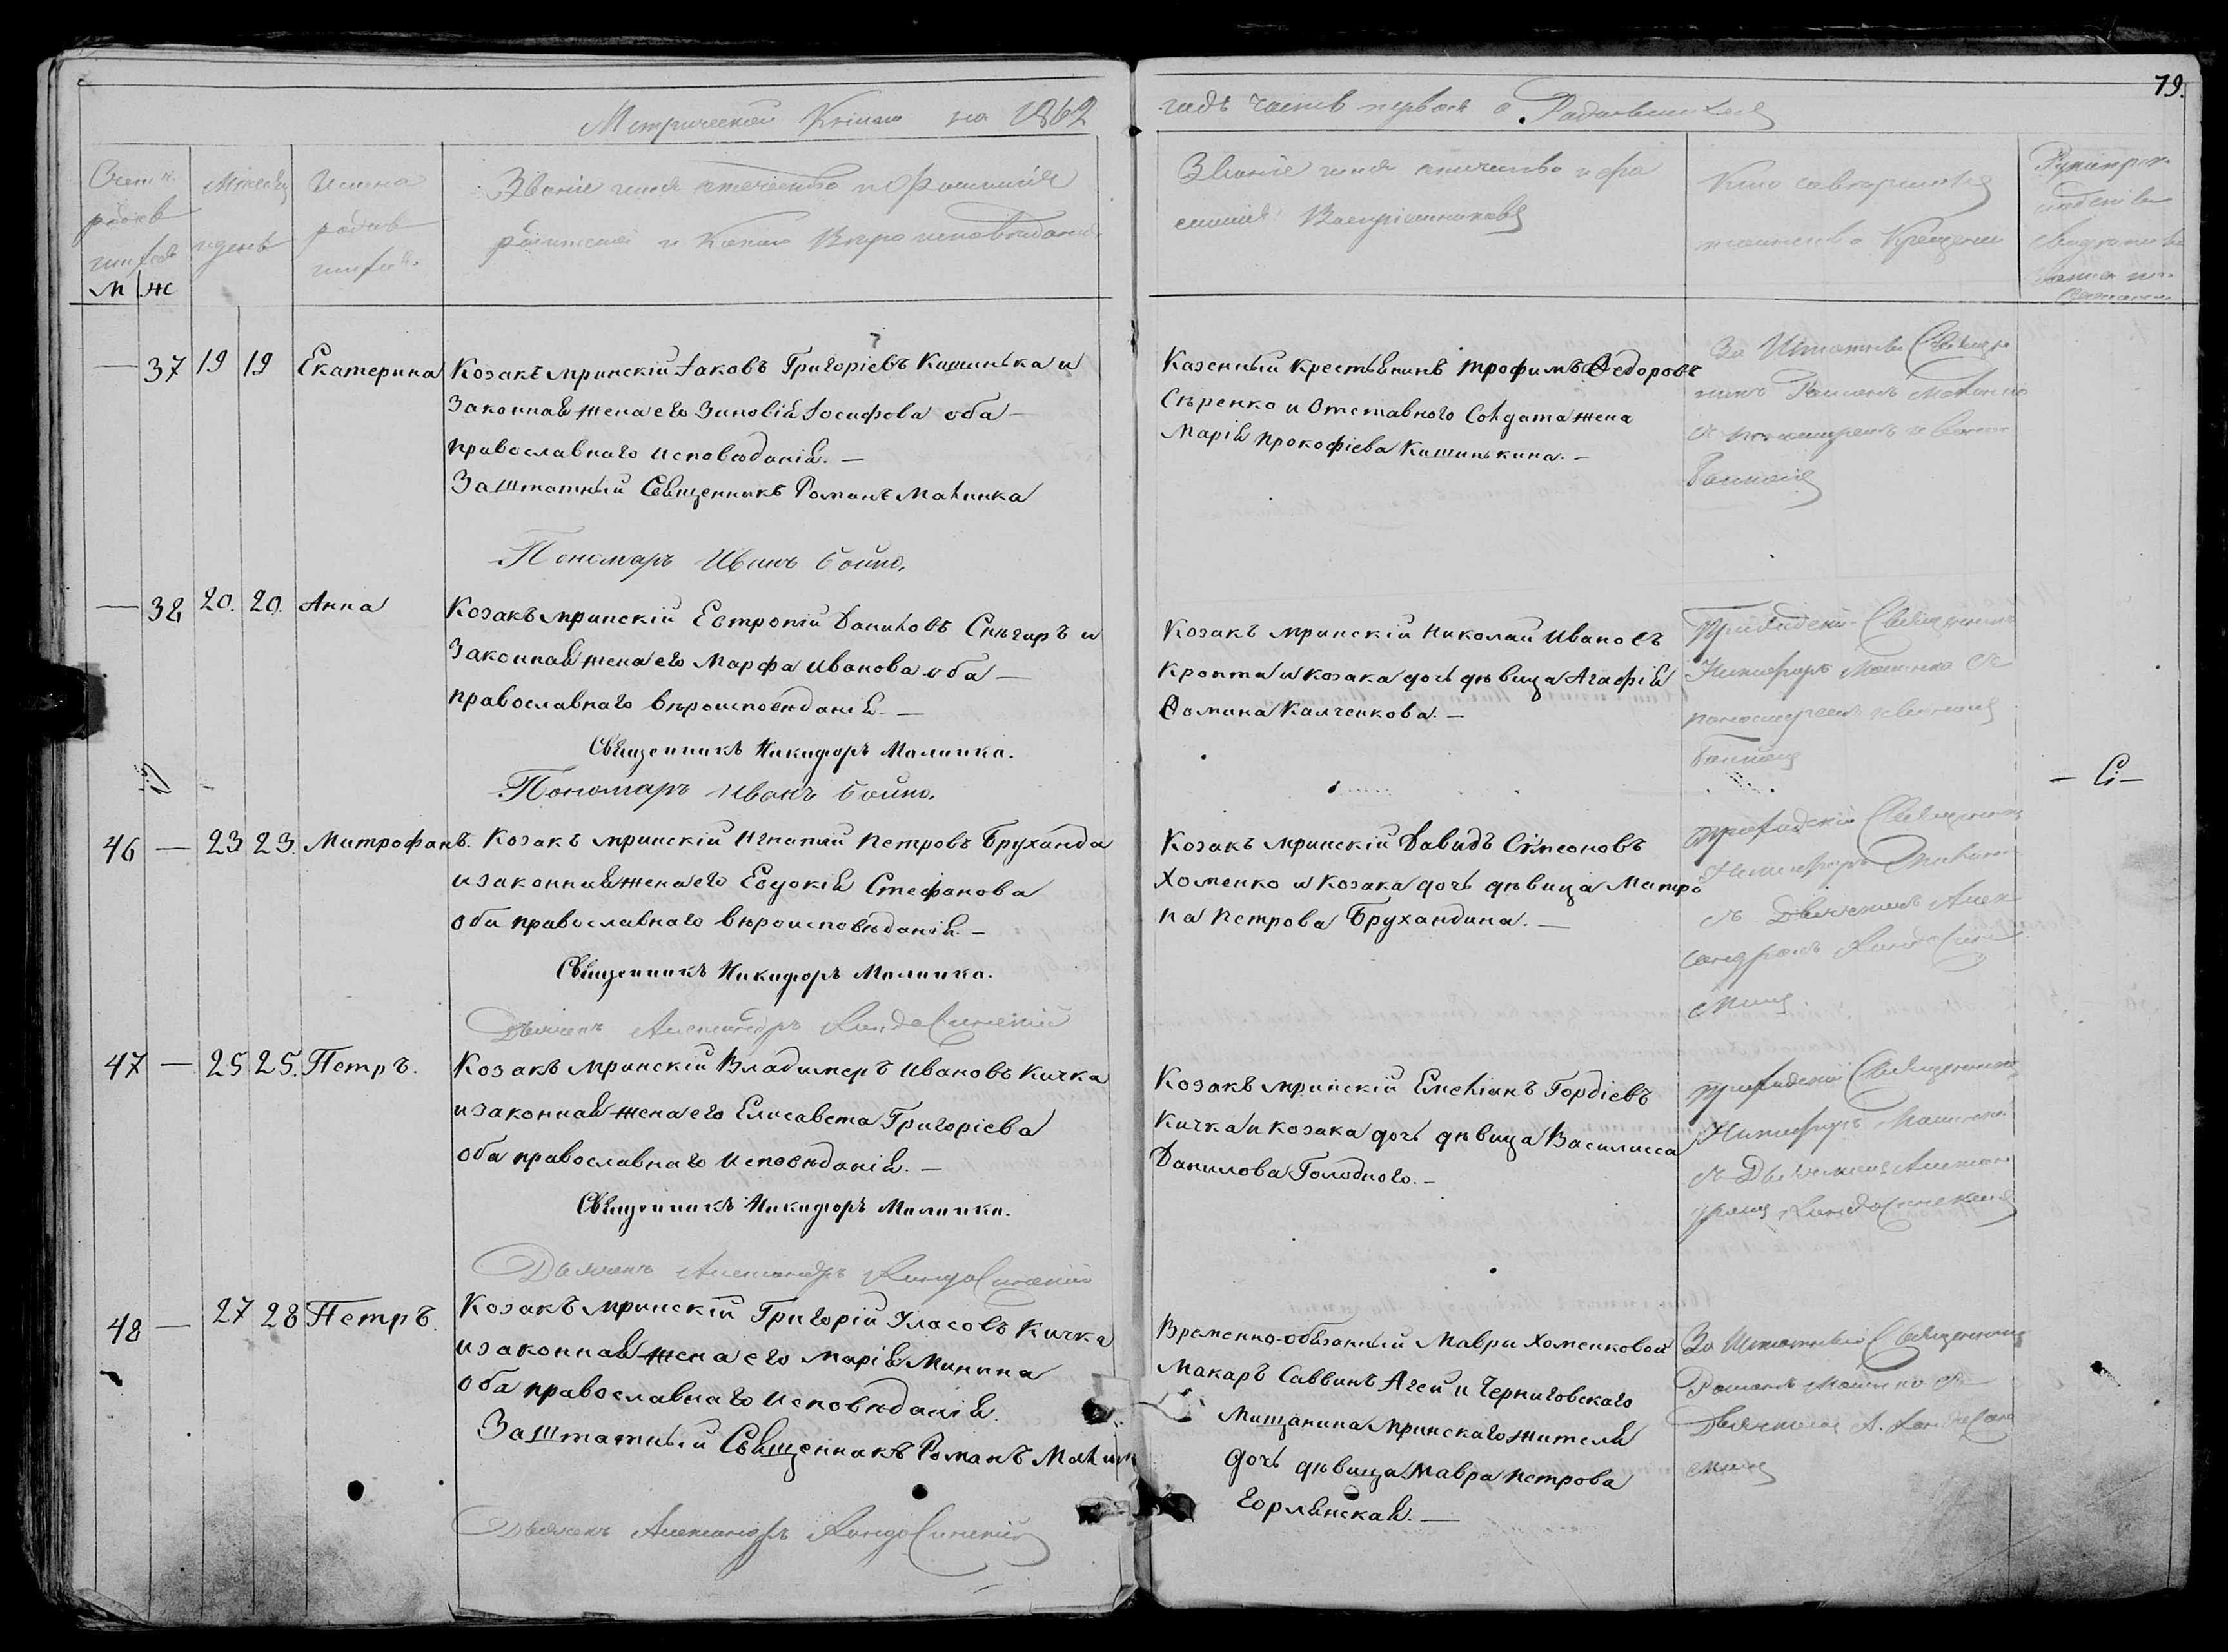 79.
Метрической Книги на 1862
годъ часть первая о Родившихся
Счетъ родившихся
М Ж
Мѣсяцъ и день
Имена родившихся
Званіе имя отчество и фамилія
родителей и какого вѣроисповѣданія
Званіе имя отчество и фа
милія Воспріемниковъ
Кто совершилъ
таинство Крещенія
— 37 19 19 Екатерина
Козакъ мринскій Іаковъ Григоріевъ Кишинька и
Законная жена его Зиновія Іосифова оба —
православнаго исповѣданія. —
Заштатный Священникъ Романъ Малинка
Пономарь Иванъ Бойко.
Казенный крестьянинъ Трофимъ Ѳедоровъ
Сѣренко и Отставного Солдата жена
Марія Прокофіева Кишинькина. —
За Штатный Священ
никъ Романъ Малинка
съ пономаремъ Иваномъ
— 38 20. 20. Анна
Козакъ мринскій Евтропій Даниловъ Снѣгиръ и
Законная жена его Марфа Иванова оба —
православнаго вѣроисповѣданія. —
Священникъ Никифоръ Малинка.
Пономарь Иванъ Бойко.
Козакъ мринскій Николай Ивановъ
Кропта и козака дочь дѣвица Агафія
Ѳомина Калченкова. —
Приходскій Священникъ
Никифоръ Малинка съ
пономаремъ Иваномъ
46 — 23 23. Митрофанъ.
Козакъ мринскій Игнатій Петровъ Бруханда
и законная жена его Евдокія Стефанова
оба православнаго вѣроисповѣданія. —
Священникъ Никифоръ Малинка.
Дьячекъ Александръ
Козакъ мринскій Давидъ Симеоновъ
Хоменко и Козака дочь дѣвица Матро
на Петрова Брухандина. —
Приходскій Священникъ
Никифоръ Малинка
съ Дьячкомъ Алек
сандромъ
47 — 25 25. Петръ.
Козакъ мринскій Владимеръ Ивановъ Кичка
и законная жена его Елисавета Григоріева
оба православнаго исповѣданія. —
Священникъ Никифоръ Малинка.
Дьячекъ Александръ
Козакъ мринскій Емеліанъ Гордіевъ
Кичка и козака дочь дѣвица Василисса
Данилова Голодного. —
Приходскій Священникъ
Никифоръ Малинка
съ Дьячкомъ
48 — 27 28 Петръ.
Козакъ мринскій Григорій Уласовъ Кичка
и законная жена его Марія Минина
оба православнаго исповѣданія.
Заштатный Священникъ Романъ Малин
Дьячекъ Александръ
Временно-обязанный Мавры Хоменковой
Макаръ Саввинъ Агей и Черниговскаго
Мищанина Мринскаго жителя
дочь дѣвица Мавра Петрова
Горлинская. —
За Штатный Священникъ
Романъ Малинка съ
Дьячкомъ А.